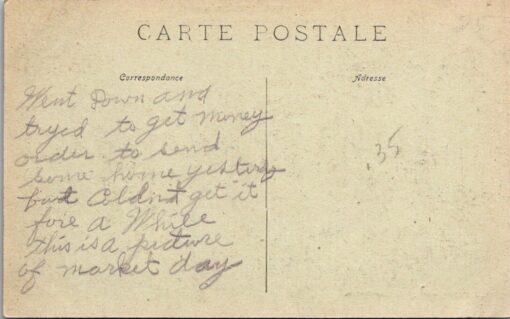 CARTE POSTALE
Correspondance
Adresse
Went Down and
tryed to get money
order to send
some home yesterdy
but Coldnt get it
fore a While
this is a picture
of market day
.35